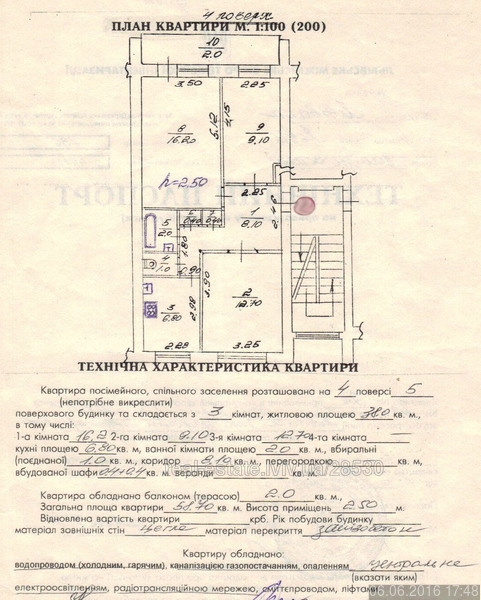 4 поверх
ПЛАН КВАРТИРИ М. 1:100 (200)
10
2.0
3.50
2.25
5.12
4.15
8
16.20
9
9.10
h=2.50
2.25
5
2.0
6
0.40
7
0.40
1
8.10
2.46
4
1.0
1.80
0.90
3
6.80
2.98
3.90
2
12.70
2.28
3.25
ТЕХНІЧНА ХАРАКТЕРИСТИКА КВАРТИРИ
Квартира посімейного, спільного заселення розташована на 4 поверсі 5
(непотрібне викреслити)
поверхового будинку та складається з 3 кімнат, житловою площею 38.0 кв. м.,
в тому числі:
1-а кімната 16,2 2-га кімната 9.10 3-я кімната 12.70 4-та кімната — 
кухні площею 6.80 кв. м., ванної кімнати площею 2.0 кв. м., вбиральні
(поєднаної) 1.0 кв. м., коридор 8.10 кв. м., перегородкою кв. м.,
вбудованої шафи 0.4+0.4 кв. м. веранди кв. м.
Квартира обладнана балконом (терасою) 2.0 кв. м.
Загальна площа квартири 58.70 кв. м. Висота приміщень 2.50 м.
Відновлена вартість квартири крб. Рік побудови будинку
матеріал зовнішніх стін цегла матеріал перекриття залізобетон
Квартиру обладнано:
водопроводом (холодним, гарячим), каналізацією газопостачанням, опаленням центральне
(вказати яким)
електроосвітленням, радіотрансляційною мережею, сміттєпроводом, ліфтами
05.06.2016 17:48